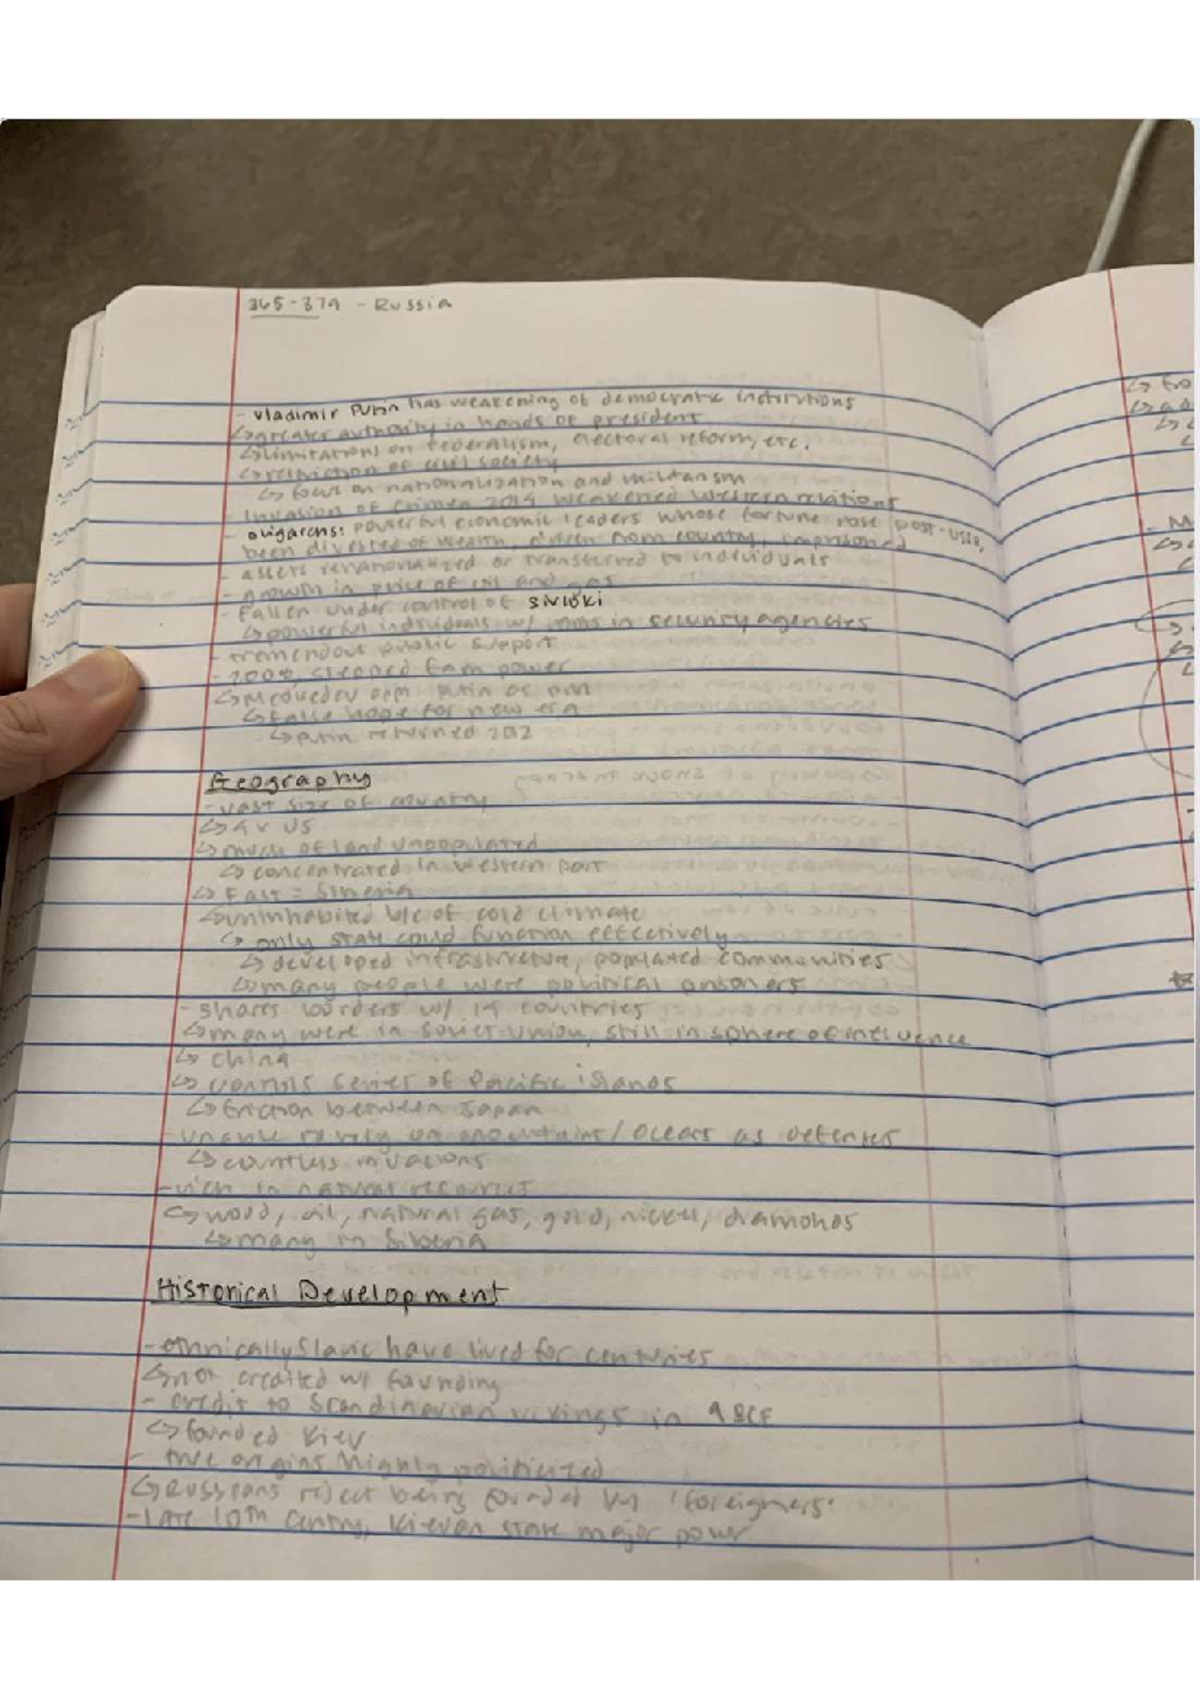 365-379 - Russia
- Vladimir Putin has weakening of democratic institutions
↳ greater authority in hands of president
↳ limitations on federalism, electoral reform, etc.
↳ restriction of civil society
↳ focus on nationalization and militarism
- Invasion of Crimea 2014 weakened western relations
- oligarchs: powerful economic leaders whose fortune rose post-USSR,
been divested of wealth, driven from country, imprisoned
- assets renationalized or transferred to individuals
- growth in price of oil and gas
- Fallen under control of siviloki
↳ powerful individuals w/ in security agencies
- tremendous public support
- 2008, stepped from power
↳ Medvedev Putin as PM
↳ False hope for new era
↳ Putin returned 2012
Geography
- vast size of country
↳ 4x US
↳ much of land unpopulated
↳ concentrated in western part
↳ East = Siberia
↳ uninhabited b/c of cold climate
↳ only state could function effectively
↳ developed infrastructure, populated communities
↳ many people were political prisoners
- shares borders w/ 14 countries
↳ many were in Soviet Union, still in sphere of influence
↳ China
↳ controls series of Pacific islands
↳ friction between Japan
- unable to rely on mountains/oceans as defenses
↳ countless invasions
- rich in natural resources
↳ wood, oil, natural gas, gold, nickel, diamonds
↳ many in Siberia
Historical Development
- ethnically Slavic have lived for centuries
↳ not credited w/ founding
- credit to Scandinavian vikings in 9 BCE
↳ founded Kiev
- true origins highly politicized
↳ Russians reject being founded by 'foreigners'
- late 10th century, Kievan state major power